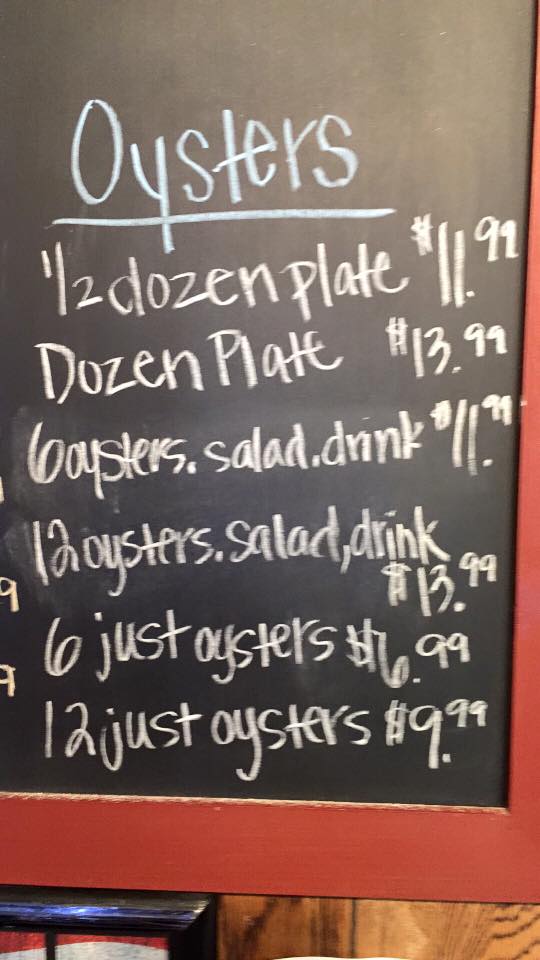 Oysters
1/2 dozen plate $11.99
Dozen Plate $13.99
6 oysters. salad. drink $11.99
12 oysters. salad, drink
$13.99
6 just oysters $6.99
12 just oysters $9.99
9
9